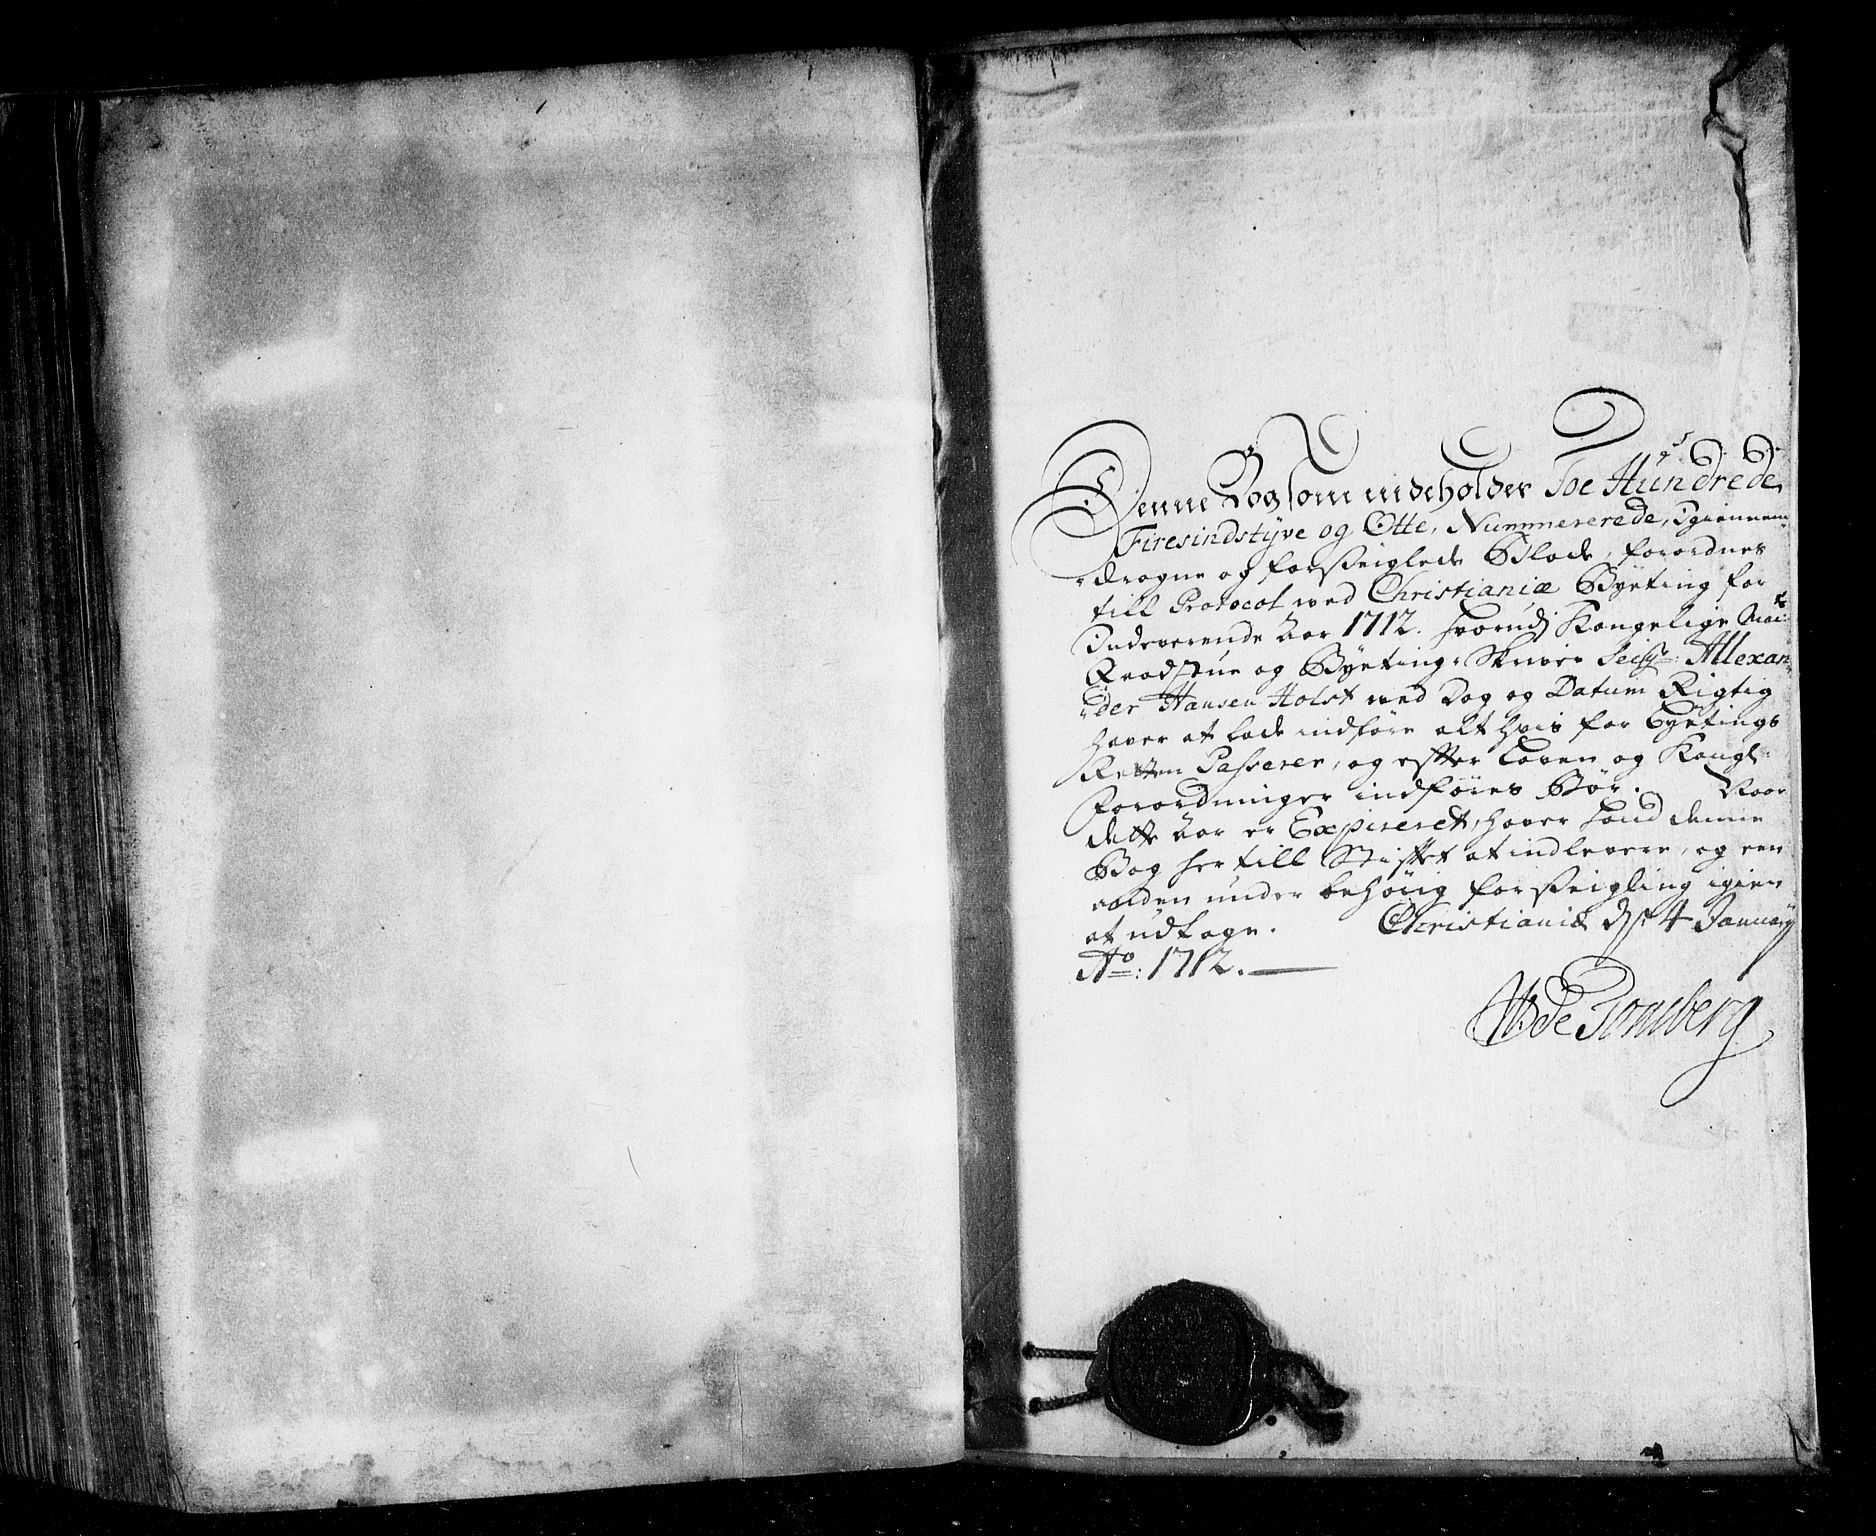 Denne Bog som indeholder Toe Hundrede,
Firesindstyve og Otte, Nummererede, Igiennem
dragne og forseiglede Blade, forordnes
till Protocol ved Christianiæ Byeting for
Indeværende Aar 1712. hvorudj Kongelige Mai:ts
Raadstue og Byeting Skriver Seigr: Allexan
der Hansen Holst ved Dag og Datum Rigtig
haver at lade indføre alt hvis for Byetings
Retten Passerer, og efter Loven og Kongl:
Forordninger indføres Bør. Naar
dette Aar er Expireret, haver hand denne
Bog her till Stiftet at indlevere, og een
anden under behørig forseigling igien
at udtage. Christianiæ dn 4 January
Ao: 1712.
WDe Tonsberg